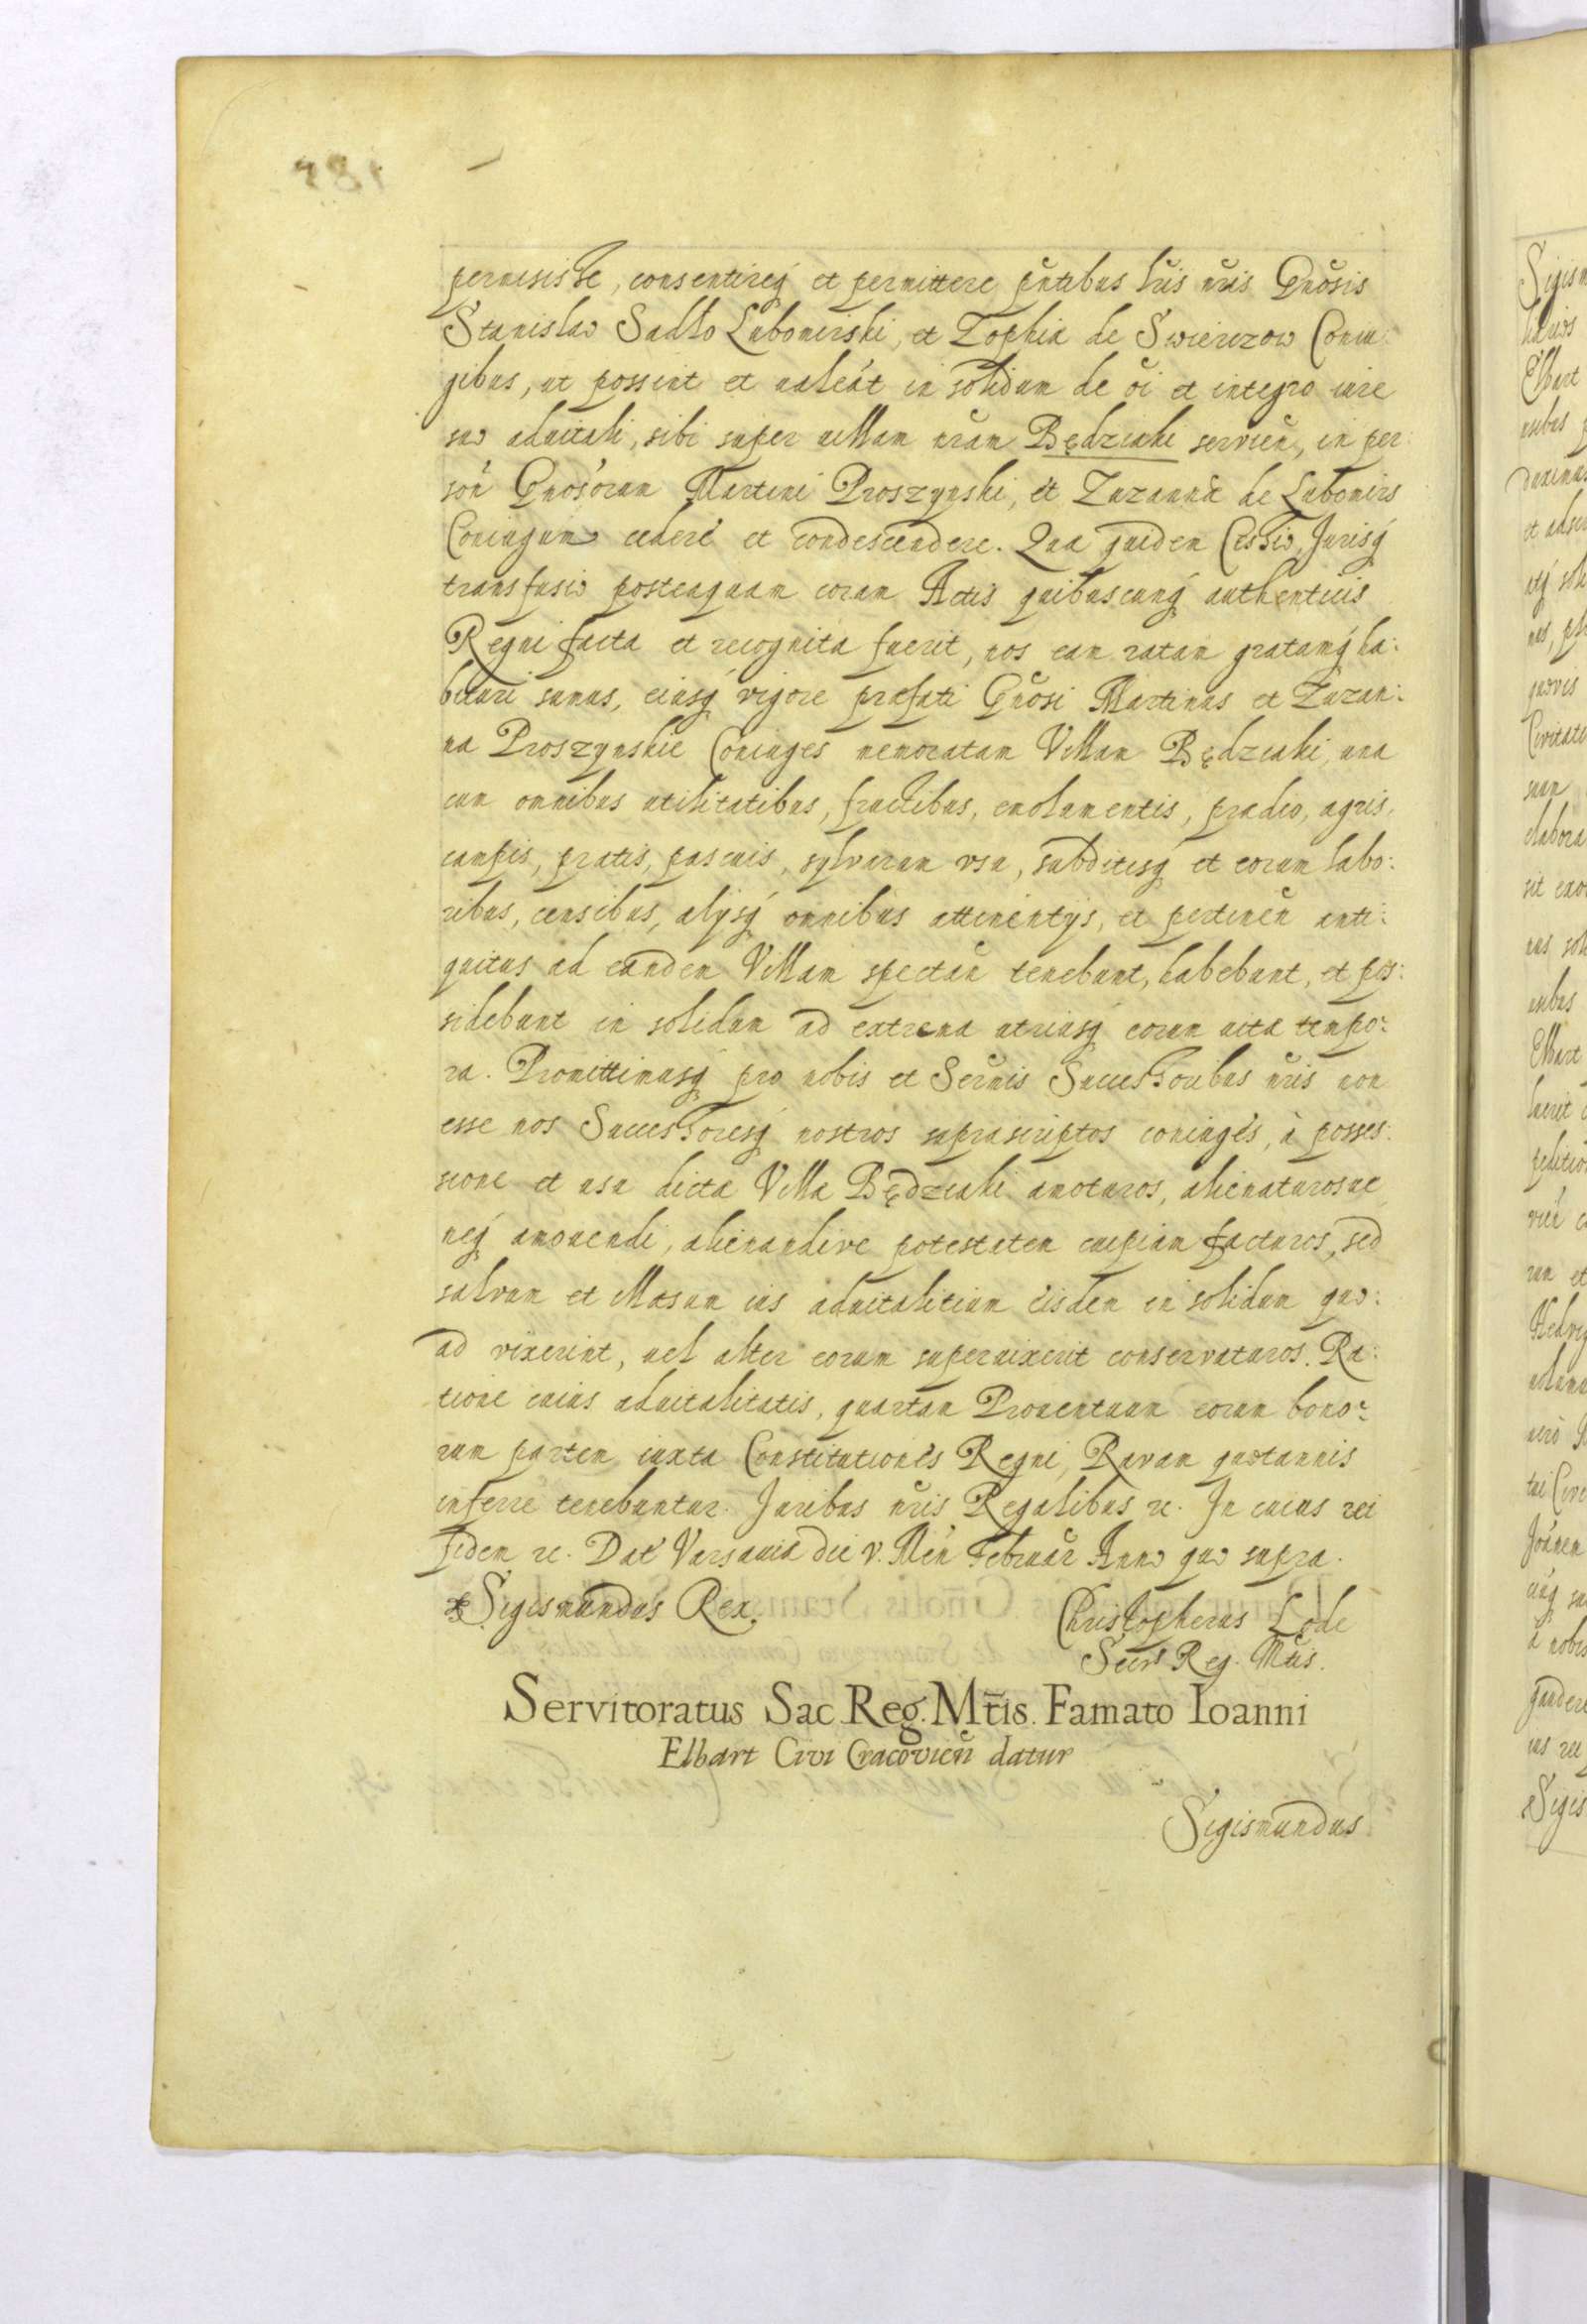 permisisse, consentireq́ et permittere pñtibus lr̃is nr̃is Gñosis
Stanislao Sadło Lubomirski, et Zophia de Swierczow Coniu:
gibus, ut possint et valeát in solidum de õi et integro iure
suo aduitali, sibi super uillam nr̃am Będziaki servień, in per:
soń Gnos̃orum Martini Proszynski, et Zuzannæ de Lubomirs
Coniugum cedere et condescendere. Qua quidem Cessio, Jurisq́
transfusio posteaquam coram Actis quibuscunq́ authenticis
Regni facta et recognita fuerit, nos eam ratam gratamq́ ha:
bituri sumus, eiusq́ vigore præfati Gñosi Martinus et Zuzan:
na Proszynskie Coniuges memoratam Villam Będziaki, una
cum omnibus utilitatibus, fructibus, emolumentis, prædio, agris,
campis, pratis, pascuis, sylvarum vsu, subditisq́ et eorum labo:
ribus, censibus, alijsq́ omnibus attinentijs, et pertineñ anti:
quitus ad eandem Villam spectañ tenebunt, habebunt, et pos:
sidebunt in solidum ad extrema utriusq́ eorum uitæ tempo:
ra. Promittimusq́ pro nobis et Serm̃is Successoribus nr̃is non
esse nos Successoresq́ nostros suprascriptos coniuges, à posses:
sione et usu dictæ Villæ Będziaki amoturos, alienaturosue
neq́ amouendi, alienandive potestatem cuipiam facturos, sed
salvum et illæsum ius aduitalitium iisdem in solidum quo:
ad vixerint, uel alter eorum superuixerit conservaturos. Ra:
tione cuius aduitalitatis, quartam Prouentuum eorum bono:
rum partem iuxta Constitutiones Regni, Ravam quotannis
inferre tenebuntur. Juribus nr̃is Regalibus rc. In cuius rei
fidem rc. Dat́ Varsauiæ die v. Meń Februar̃ Anno quo supra.
Sigismundus Rex.
Christopherus Lode
Secrs Reg. Mtis.
Servitoratus Sac. Reg. Mt̃is. Famato Ioanni
Elbart Civi Cracovieñ datur
Sigismundus